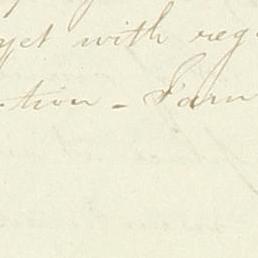 yet with reg
tion - I am